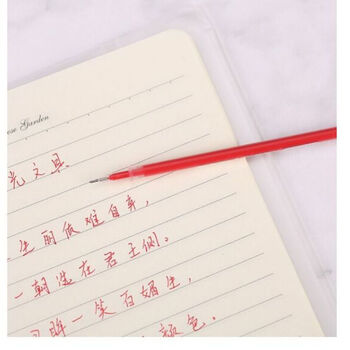 ese Garden
光文具
生丽质难自弃，
一朝选在君王侧。
眸一笑百媚生，
颜色。